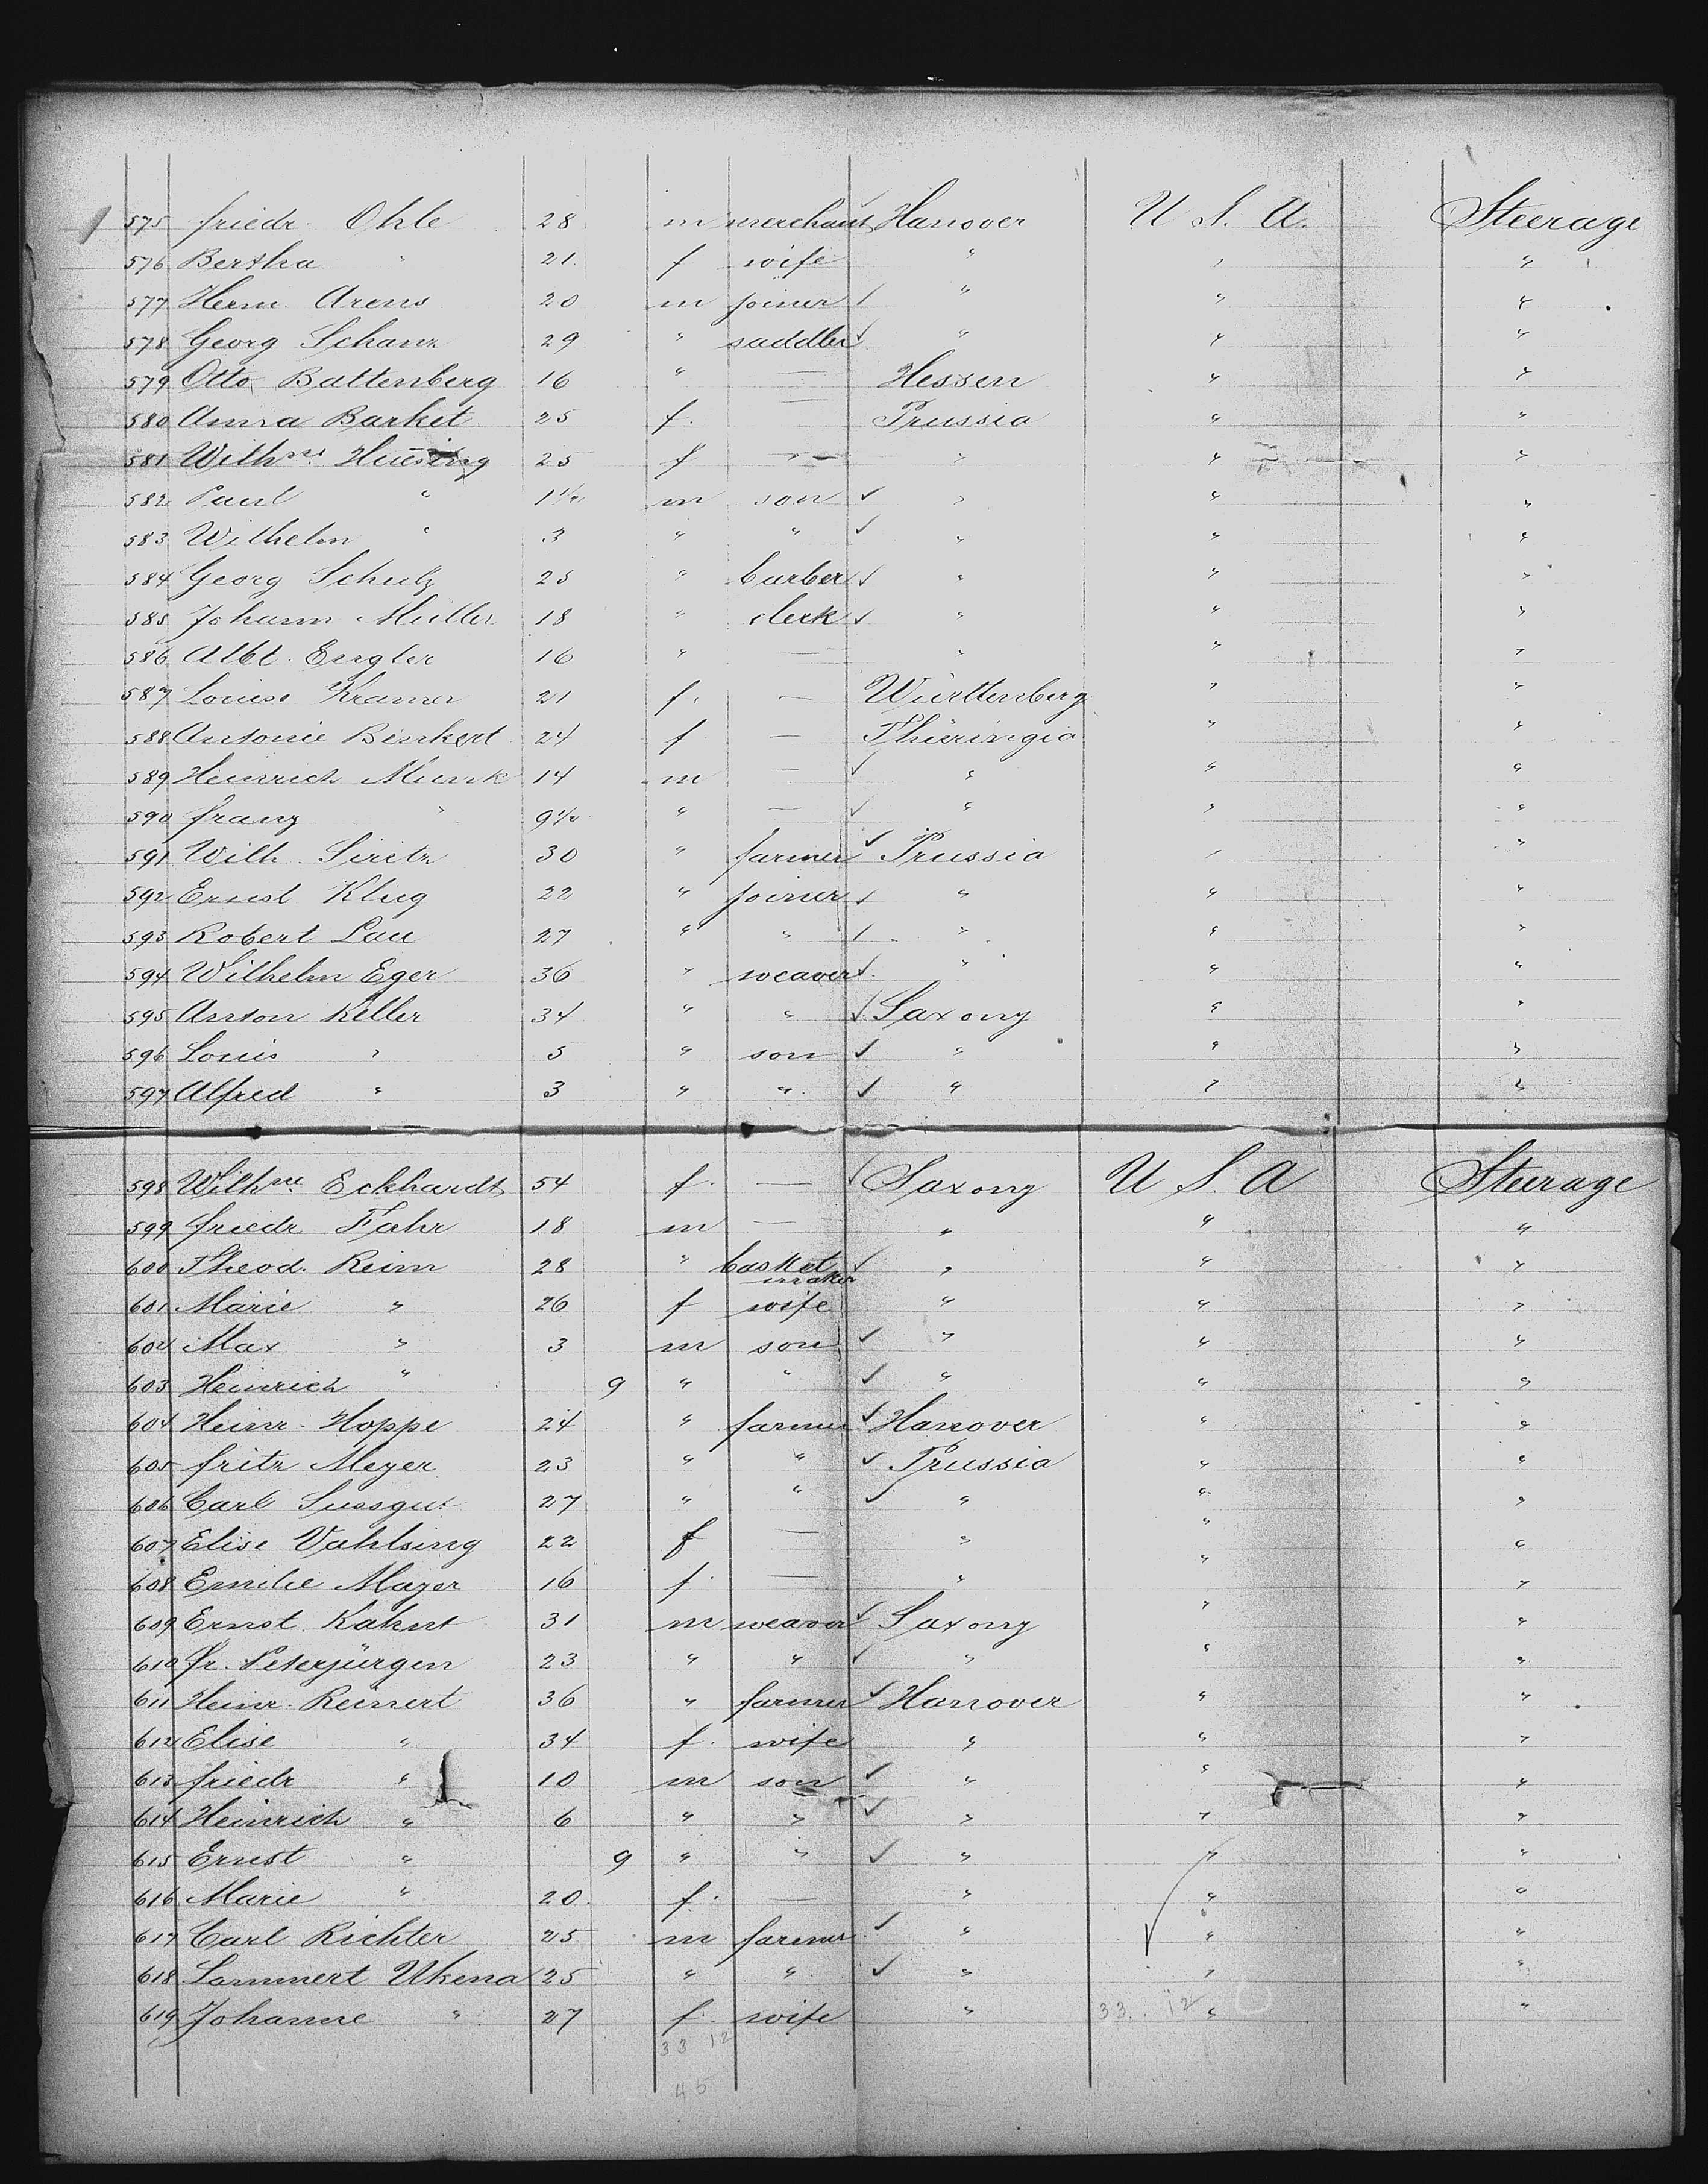 575 friedr. Ohle 28 m merchant Hanover U. S. A. Steerage
576 Bertha " 21 f wife " " "
577 Herm. Arens 20 m joiner " " "
578 Georg Schanz 29 " saddler " " "
579 Otto Battenberg 16 " — Hessen " "
580 Anna Barket 25 f. — Prussia " "
581 Wilhne. Huesing 25 f — " " "
582 Paul " 1 1/2 m son " " "
583 Wilhelm " 3 " " " " "
584 Georg Schulz 25 " barber " " "
585 Johann Muller 18 " clerk " " "
586 Albt. Engler 16 " — " " "
587 Louise Kramer 21 f. — Württenberg " "
588 Antonie Binkert 24 f — Thüringia " "
589 Heinrich Munk 14 m — " " "
590 franz " 9 1/2 " — " " "
591 Wilh. Siretz 30 " farmer Prussia " "
592 Ernst Klug 22 " joiner " " "
593 Robert Lau 27 " " " " "
594 Wilhelm Eger 36 " weaver " " "
595 Anton Keller 34 " " Saxony " "
596 Louis " 5 " son " " "
597 Alfred " 3 " " " " "
598 Wilhne. Eckhardt 54 f. — Saxony U. S. A Steerage
599 friedr Fahr 18 m — " " "
600 Theod. Reim 28 " basket maker " " "
601 Marie " 26 f wife " " "
602 Max " 3 m son " " "
603 Heinrich " 9 " " " " "
604 Heinr. Hoppe 24 " farmer Hanover " "
605 fritz Meyer 23 " " Prussia " "
606 Carl Sussgut 27 " " " " "
607 Elise Vahlsing 22 f — " " "
608 Emilie Mayer 16 f. — " " "
609 Ernst Kahnt 31 m weaver Saxony " "
610 fr. Peterjürgen 23 " " " " "
611 Heinr. Reinert 36 " farmer Hanover " "
612 Elise " 34 f. wife " " "
613 friedr " 10 m son " " "
614 Heinrich " 6 " " " " "
615 Ernst " 9 " " " " "
616 Marie " 20 f. — " " "
617 Carl Richter 25 m farmer " " "
618 Lammert Ukena 25 " " " " "
619 Johanne " 27 f. wife " " "
33 12
33 12
45